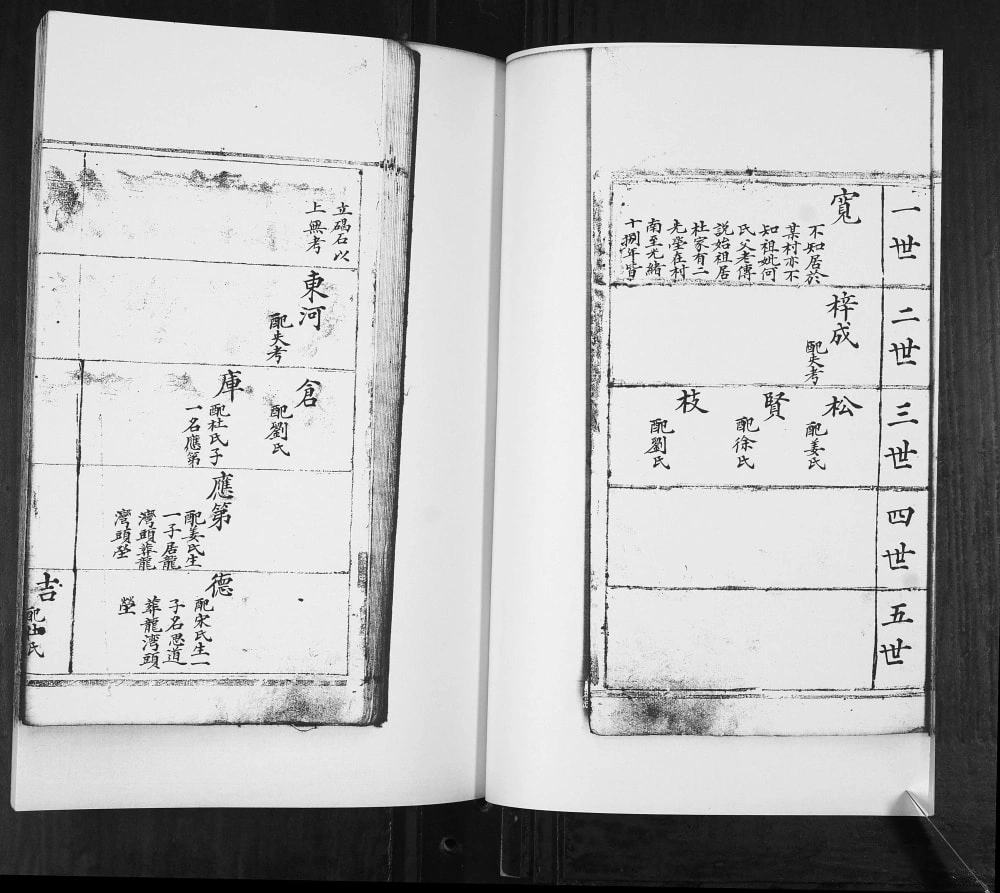 一世
二世
三世
四世
五世
寬
不知居於
某村亦不
知祖妣何
氏父老傳
説始祖居
杜家有二
先塋在村
南至光緒
十捌年皆
梓成
配失考
松
配姜氏
賢
配徐氏
枝
配劉氏
立碣石以
上無考
東河
配失考
倉
配劉氏
庫
配杜氏子
一名應第
應第
配姜氏生
一子居龍
灣頭葬龍
灣頭塋
德
配宋氏生一
子名思道
葬龍灣頭
塋
吉
配杜氏